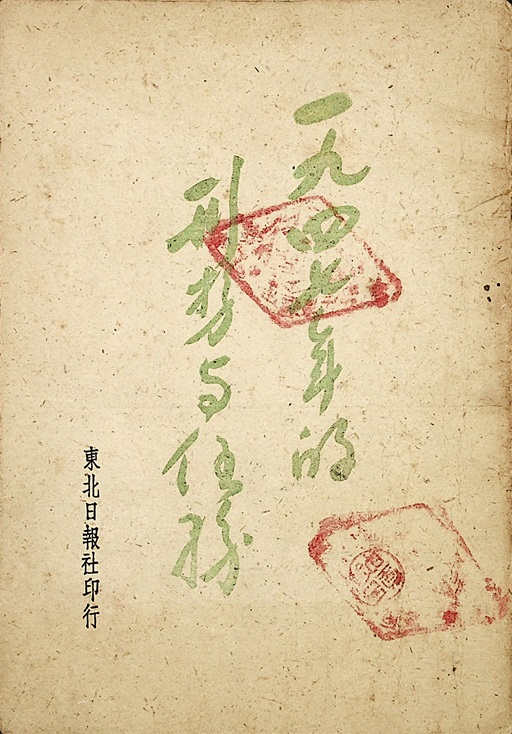 一九四七年的
形势与任務
東北日報社印行